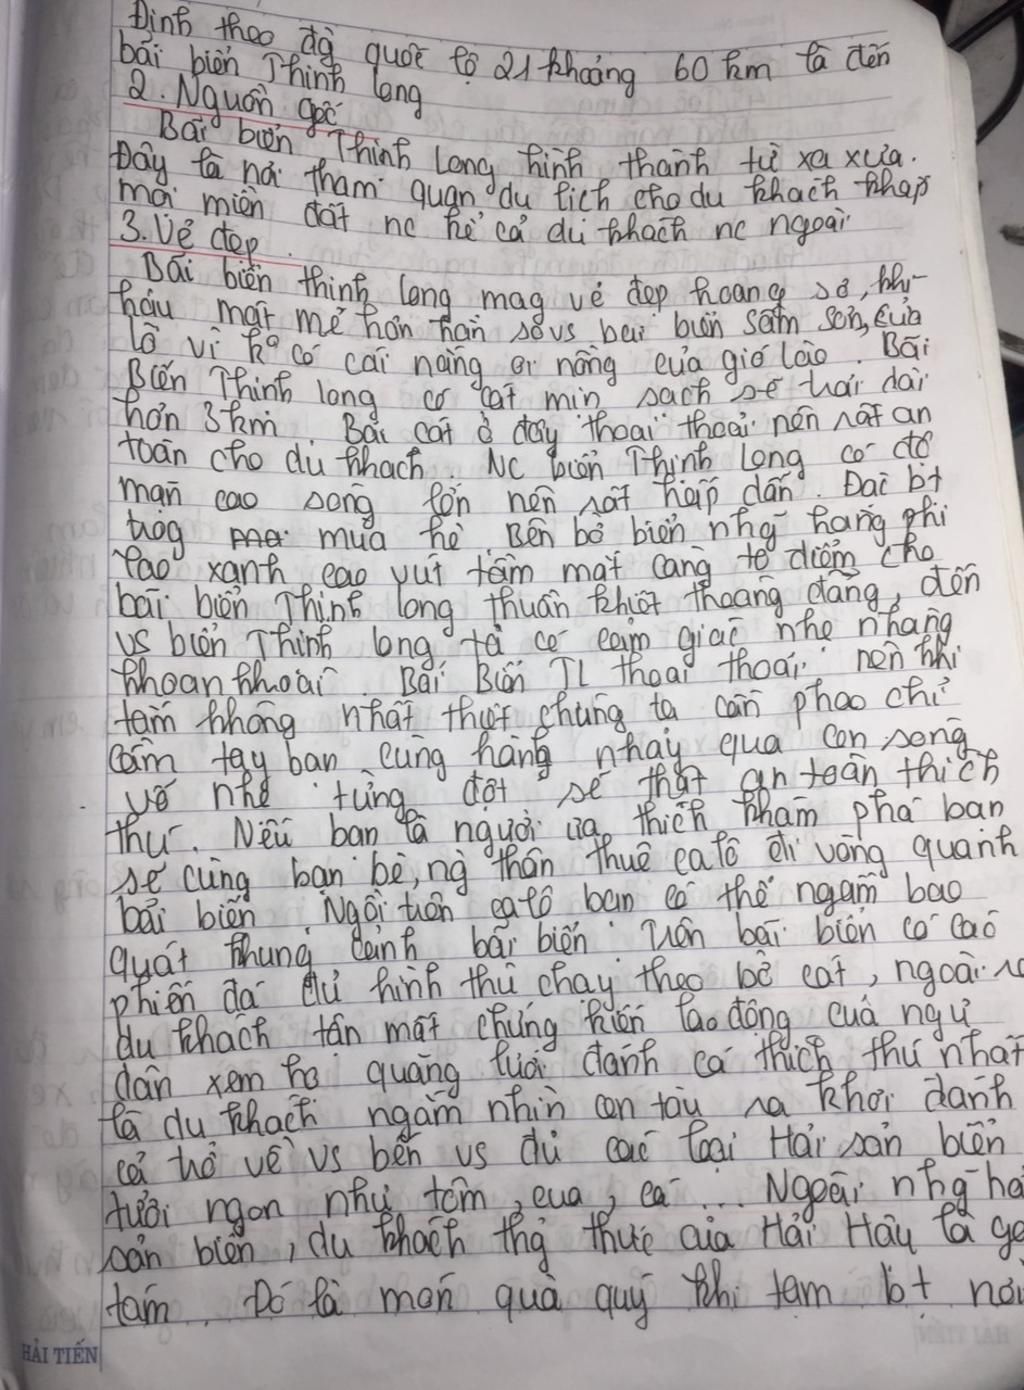 Định theo đg quốc lộ 21 khoảng 60 km là đến
bãi biển Thịnh long
2. Nguồn gốc
Bãi biển Thịnh Long hình thành từ xa xưa.
Đây là nơi tham quan du lịch cho du khách khắp
mọi miền đất nc kể cả du khách nc ngoài
3. Vẻ đẹp.
Bãi biển thịnh long mag vẻ đẹp hoang sơ, khí
hậu mát mẻ hơn hẳn so vs bãi biển Sầm Sơn, Cửa
lò vì ko có cái nắng oi nồng của gió lào. Bãi
Biển Thịnh long có cát mịn sạch sẽ trải dài
hơn 3km. Bãi cát ở đây thoai thoải nên rất an
toàn cho du khách. Nc biển Thịnh Long có độ
mặn cao sóng lớn nên rất hấp dẫn. Đặc bt
trog mùa hè. Bên bờ biển nhg hàng phi
lao xanh cao vút tầm mắt càng tô điểm cho
bãi biển Thịnh long thuần khiết thoáng đãng, đến
vs biển Thịnh long ta có cảm giác nhẹ nhàng
khoan khoái. Bãi Biển TL thoai thoải nên khi
tắm không nhất thiết chúng ta cần phao chỉ
cầm tay bạn cùng hàng nhảy qua con sóng
vỗ nhẹ từng đợt sẽ thật an toàn thích
thú. Nếu bạn là người ưa thích khám phá bạn
sẽ cùng bạn bè, ng thân thuê ca nô đi vòng quanh
bãi biển. Ngồi trên ca nô bạn có thể ngắm bao
quát khung cảnh bãi biển. Trên bãi biển có các
phiến đá đủ hình thù chạy theo bờ cát, ngoài ra
du khách tận mắt chứng kiến lao động của ngư
dân xem họ quăng lưới đánh cá thích thú nhất
là du khách ngắm nhìn con tàu ra khơi đánh
cá trở về vs bến vs đủ các loại Hải sản biển
tươi ngon như tôm, cua, cá ... Ngoài nhg hả
sản biển, du khách thg thức của Hải Hậu là gạ
tám. Đó là món quà quý khi tạm bt nơi
HẢI TIẾN